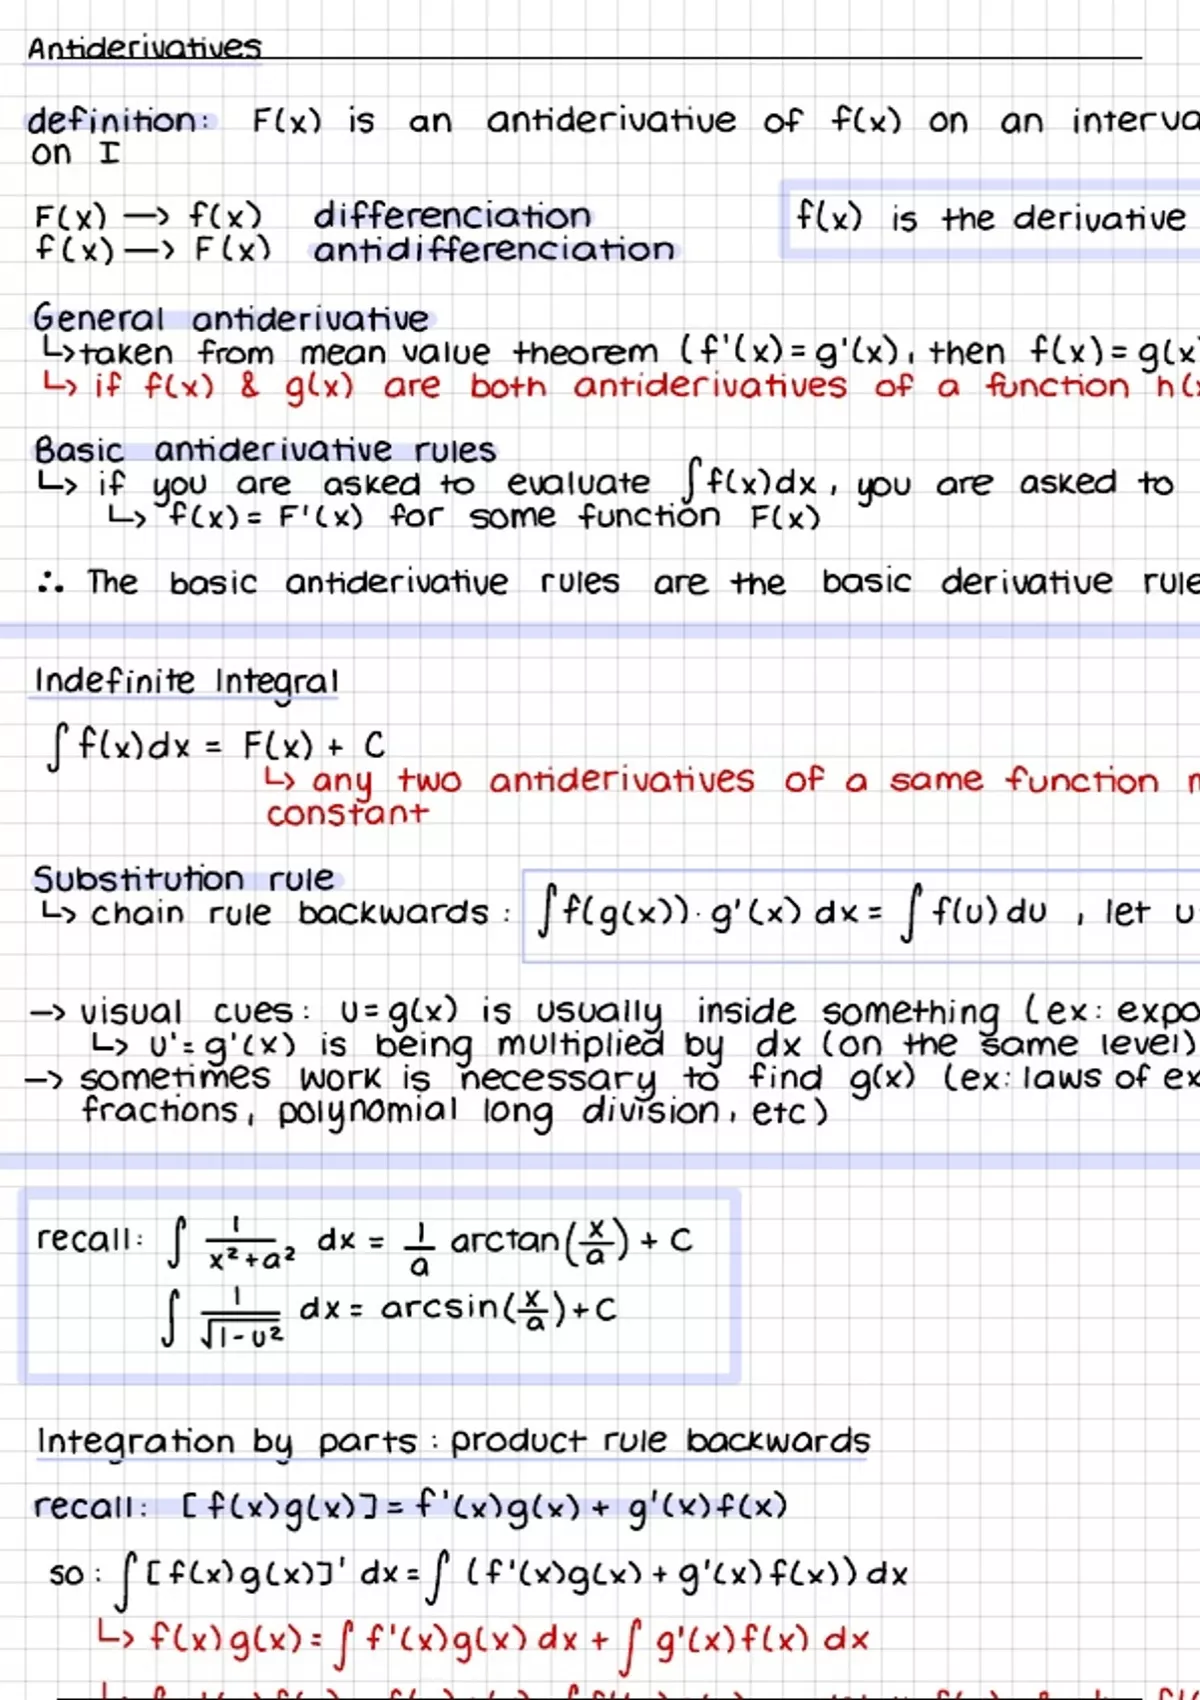 Antiderivatives
definition: F(x) is an antiderivative of f(x) on an interva
on I
F(x) → f(x) differenciation
f(x) is the derivative
f(x) → F(x) antidifferenciation
General antiderivative
↳ taken from mean value theorem (f'(x) = g'(x), then f(x) = g(x)
↳ if f(x) & g(x) are both antiderivatives of a function h(x
Basic antiderivative rules
↳ if you are asked to evaluate ∫f(x)dx, you are asked to
↳ f(x) = F'(x) for some function F(x)
∴ The basic antiderivative rules are the basic derivative rule
Indefinite Integral
∫f(x)dx = F(x) + C
↳ any two antiderivatives of a same function
constant
Substitution rule
↳ chain rule backwards: ∫f(g(x))·g'(x) dx = ∫f(u) du, let u
→ visual cues: u = g(x) is usually inside something (ex: expo
↳ u' = g'(x) is being multiplied by dx (on the same level)
→ sometimes work is necessary to find g(x) (ex: laws of ex
fractions, polynomial long division, etc)
recall: ∫ 1/(x²+a²) dx = 1/a arctan(x/a) + C
∫ 1/√(1-u²) dx = arcsin(x/a) + C
Integration by parts: product rule backwards
recall: [f(x)g(x)] = f'(x)g(x) + g'(x)f(x)
so: ∫[f(x)g(x)]' dx = ∫(f'(x)g(x) + g'(x)f(x)) dx
↳ f(x)g(x) = ∫f'(x)g(x) dx + ∫g'(x)f(x) dx